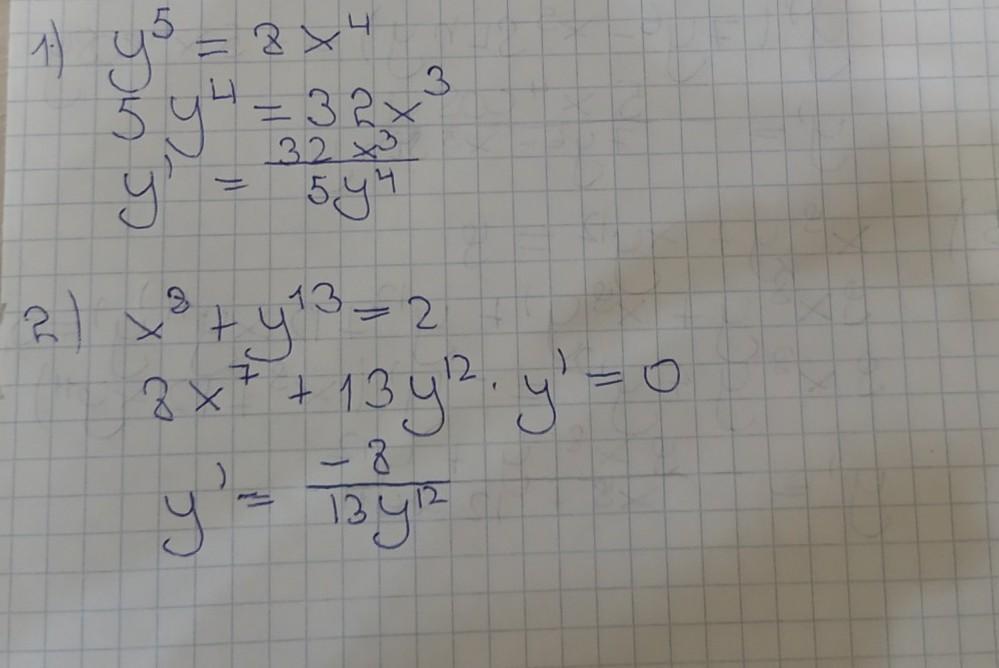 1) y⁵ = 8x⁴
5y⁴ = 32x³
y' = 32x³/5y⁴
2) x⁸ + y¹³ = 2
8x⁷ + 13y¹² · y' = 0
y' = -8/13y¹²